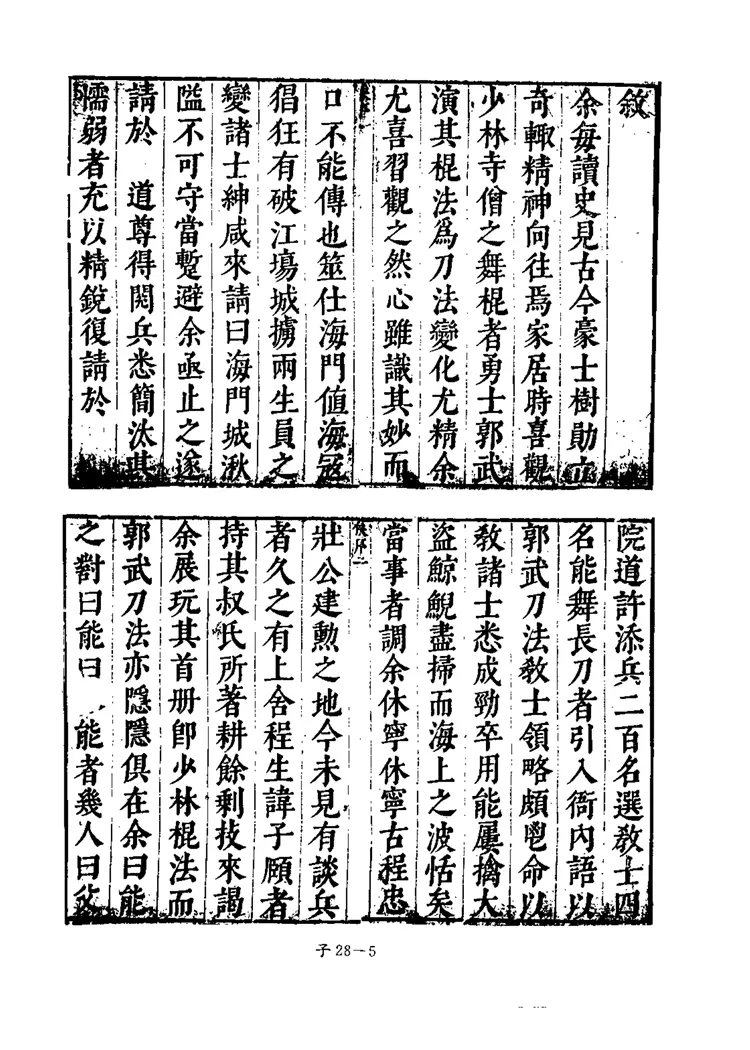 敘
余每讀史見古今豪士樹勛立
奇輙精神向往焉家居時喜觀
少林寺僧之舞棍者勇士郭武
演其棍法爲刀法變化尤精余
尤喜習觀之然心雖識其妙而
口不能傳也筮仕海門值海寇
猖狂有破江塲城擄兩生員之
變諸士紳咸來請曰海門城湫
隘不可守當蹔避余亟止之遂
請於 道尊得閱兵悉簡汰其
懦弱者充以精銳復請於
院道許添兵二百名選敎士四
名能舞長刀者引入衙內語以
郭武刀法敎士領略頗鬯命以
敎諸士悉成勁卒用能屢擒大
盜鯨鯢盡掃而海上之波恬矣
當事者調余休寧休寧古程忠
壯公建勳之地今未見有談兵
者久之有上舍程生諱子頤者
持其叔氏所著耕餘剩技來謁
余展玩其首册卽少林棍法而
郭武刀法亦隱隱俱在余曰能
之對曰能曰 能者幾人曰父
子28—5